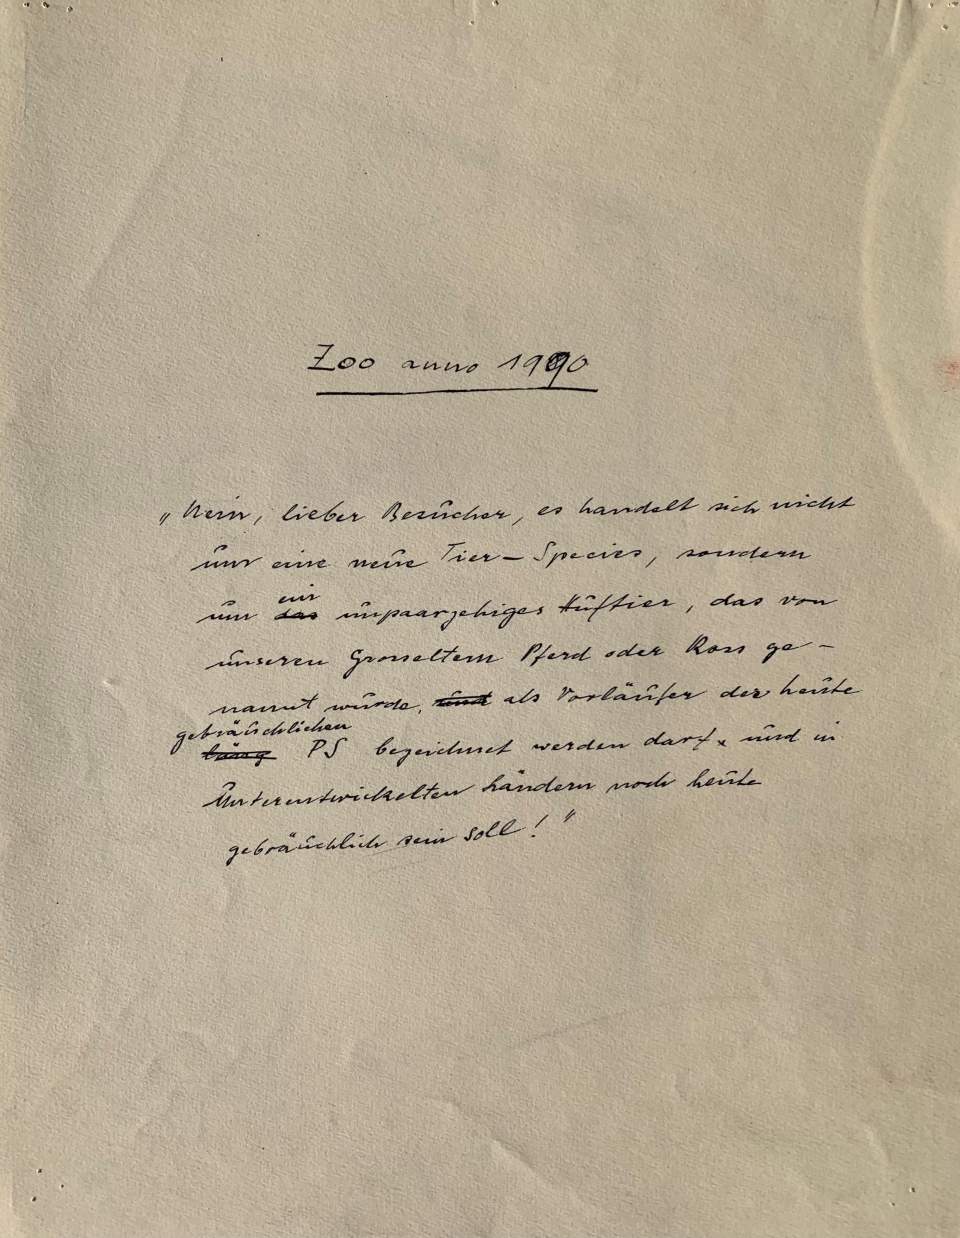 Zoo anno 1990
„Nein, lieber Besucher, es handelt sich nicht
um eine neue Tier-Species, sondern
ein
um das unpaarzehiges Huftier, das von
unseren Grosseltern Pferd oder Ross ge-
nannt wurde, und als Vorläufer der heute
gebräuchlichen
PS bezeichnet werden darf, und in
Unterentwickelten Ländern noch heute
gebräuchlich sein soll!"